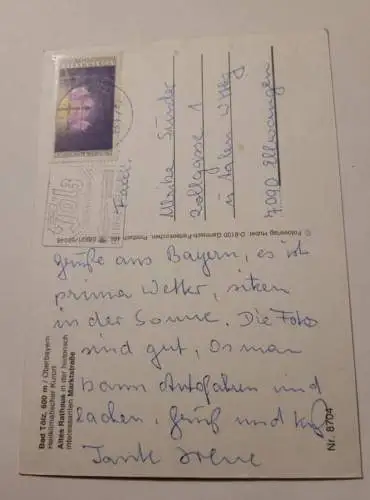 Grüße aus Bayern, es ist
prima Wetter, sitzen
in der Sonne. Die Fotos
sind gut, Os man
kann Autofahren und
Lachen, Gruß und Kuß
Tante Irene
Ulrike
Zollgasse 1
7090 Ellwangen
Bad Tölz, 600 m / Oberbayern
Heilklimatischer Kurort
Altes Rathaus in der historisch
interessanten Marktstraße
Nr. 8704
© Fotoverlag Huber, D-8100 Garmisch-Partenkirchen, Postfach